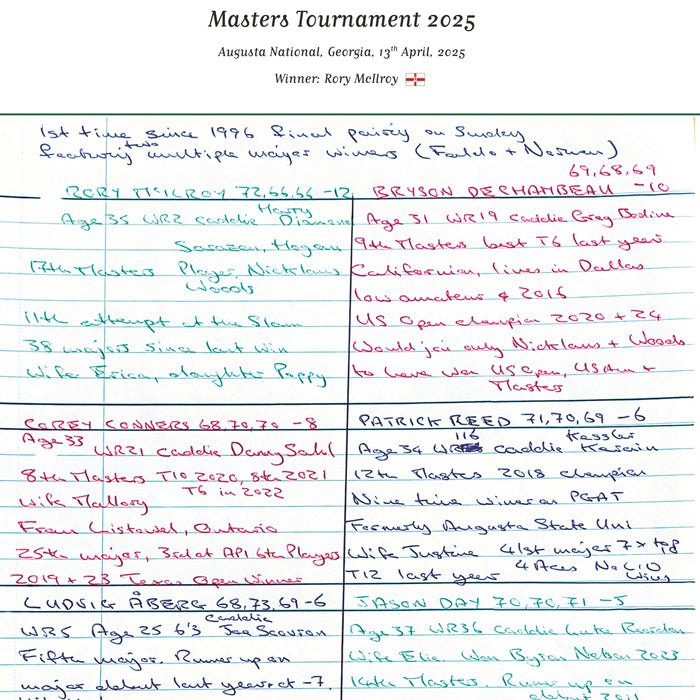 Masters Tournament 2025
Augusta National, Georgia, 13th April, 2025
Winner: Rory McIlroy
1st time since 1996 final pairing on Sunday
featuring two multiple major winners (Faldo + Norman)
RORY McILROY 72,66,66 -12
Age 35 WR2 caddie Harry Diamond
Sarazen, Hogan
17th Masters Player, Nicklaus
Woods
11th attempt at the Slam
38 majors since last win
Wife Erica, daughter Poppy
69,68,69
BRYSON DECHAMBEAU -10
Age 31 WR19 caddie Greg Bodine
9th Masters best T6 last year
Californian, lives in Dallas
low amateur 2016
US Open champion 2020 + 24
Would join only Nicklaus + Woods
to have won US Open, US Am +
Masters
COREY CONNERS 68,70,70 -8
Age 33 WR21 caddie Danny Sahl
8th Masters T10 2020, 8th 2021
T6 in 2022
Wife Mallory
From Listowel, Ontario
25th major, 3rd at API 6th Players
2019 + 23 Texas Open Winner
PATRICK REED 71,70,69 -6
Age 34 WR 116 caddie Kessler Karain
12th Masters 2018 champion
Nine time winner on PGAT
Formerly Augusta State Uni
Wife Justine 41st major 7 x top8
T12 last year 4 Aces No LIV
Wins
LUDVIG ÅBERG 68,73,69 -6
WR5 Age 25 6'3 caddie Joe Scovron
Fifth major. Runner up on
major debut last year at -7.
JASON DAY 70,70,71 -5
Age 37 WR36 caddie Luke Reardon
Wife Ellie. Won Byron Nelson 2023
14th Masters. Runner up on
debut 2011